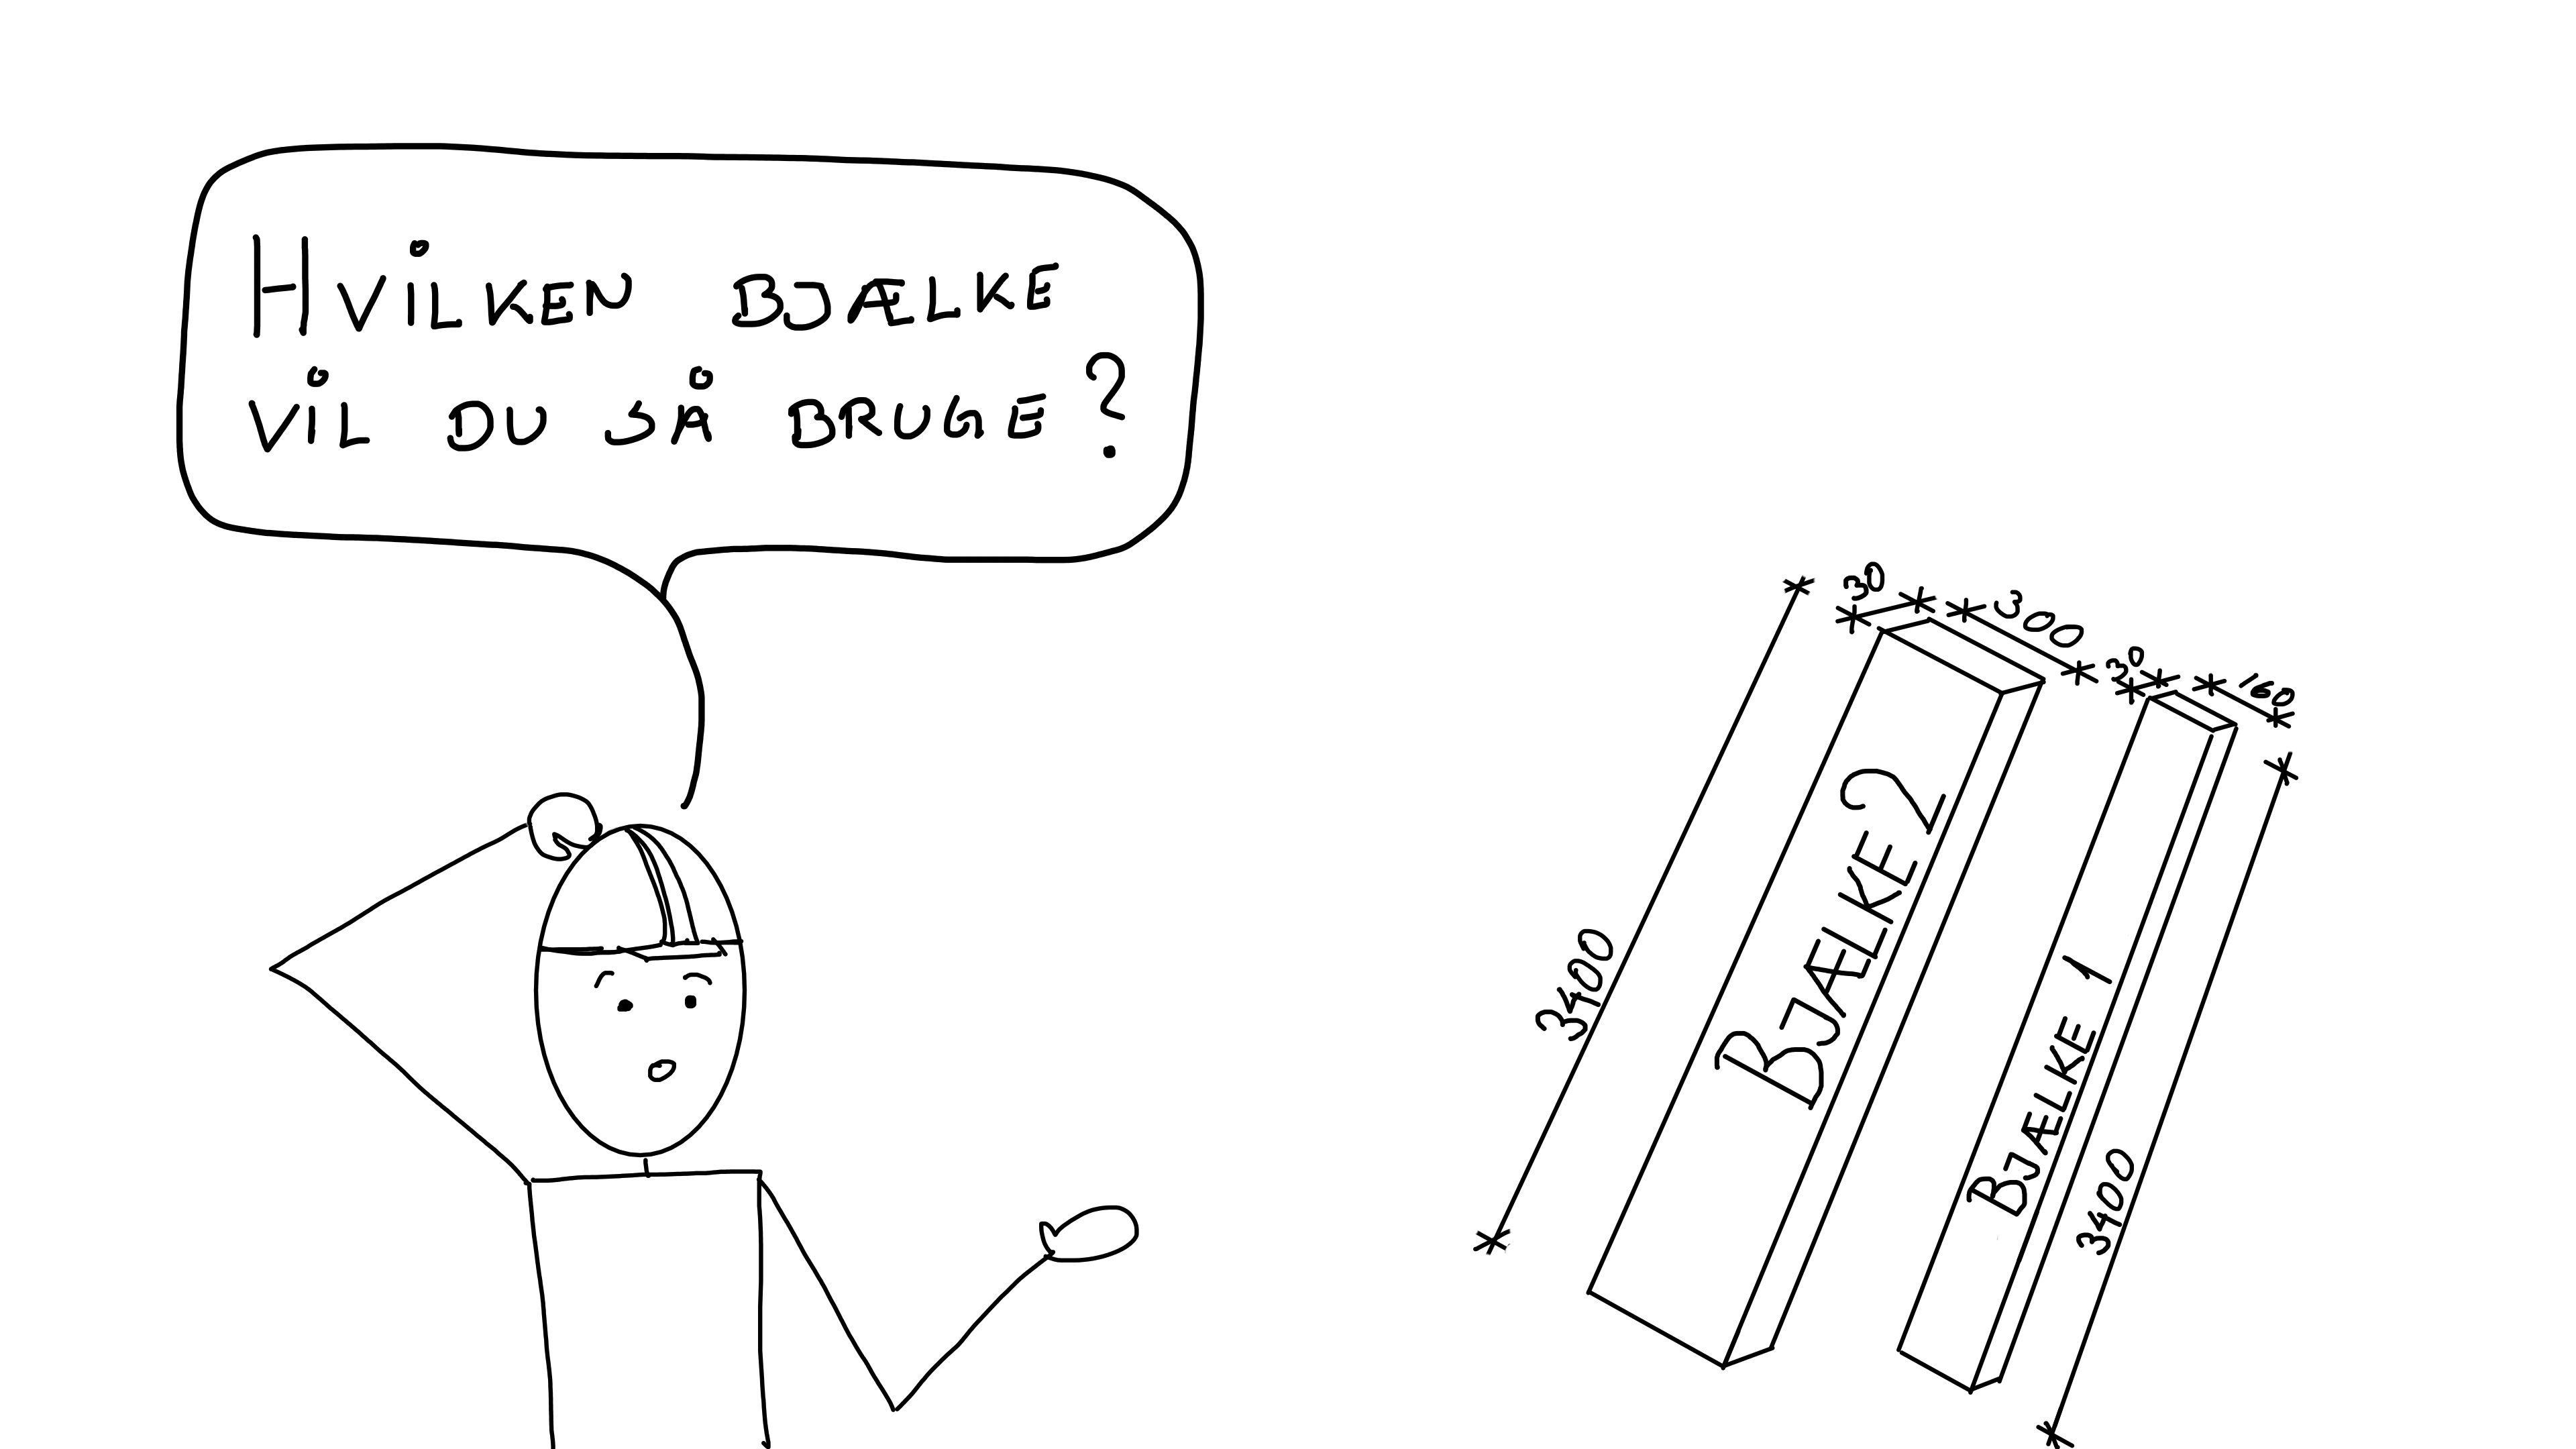 HVILKEN BJÆLKE
VIL DU SÅ BRUGE?
30
300
30
160
3400
BJÆLKE 2
BJÆLKE 1
3400